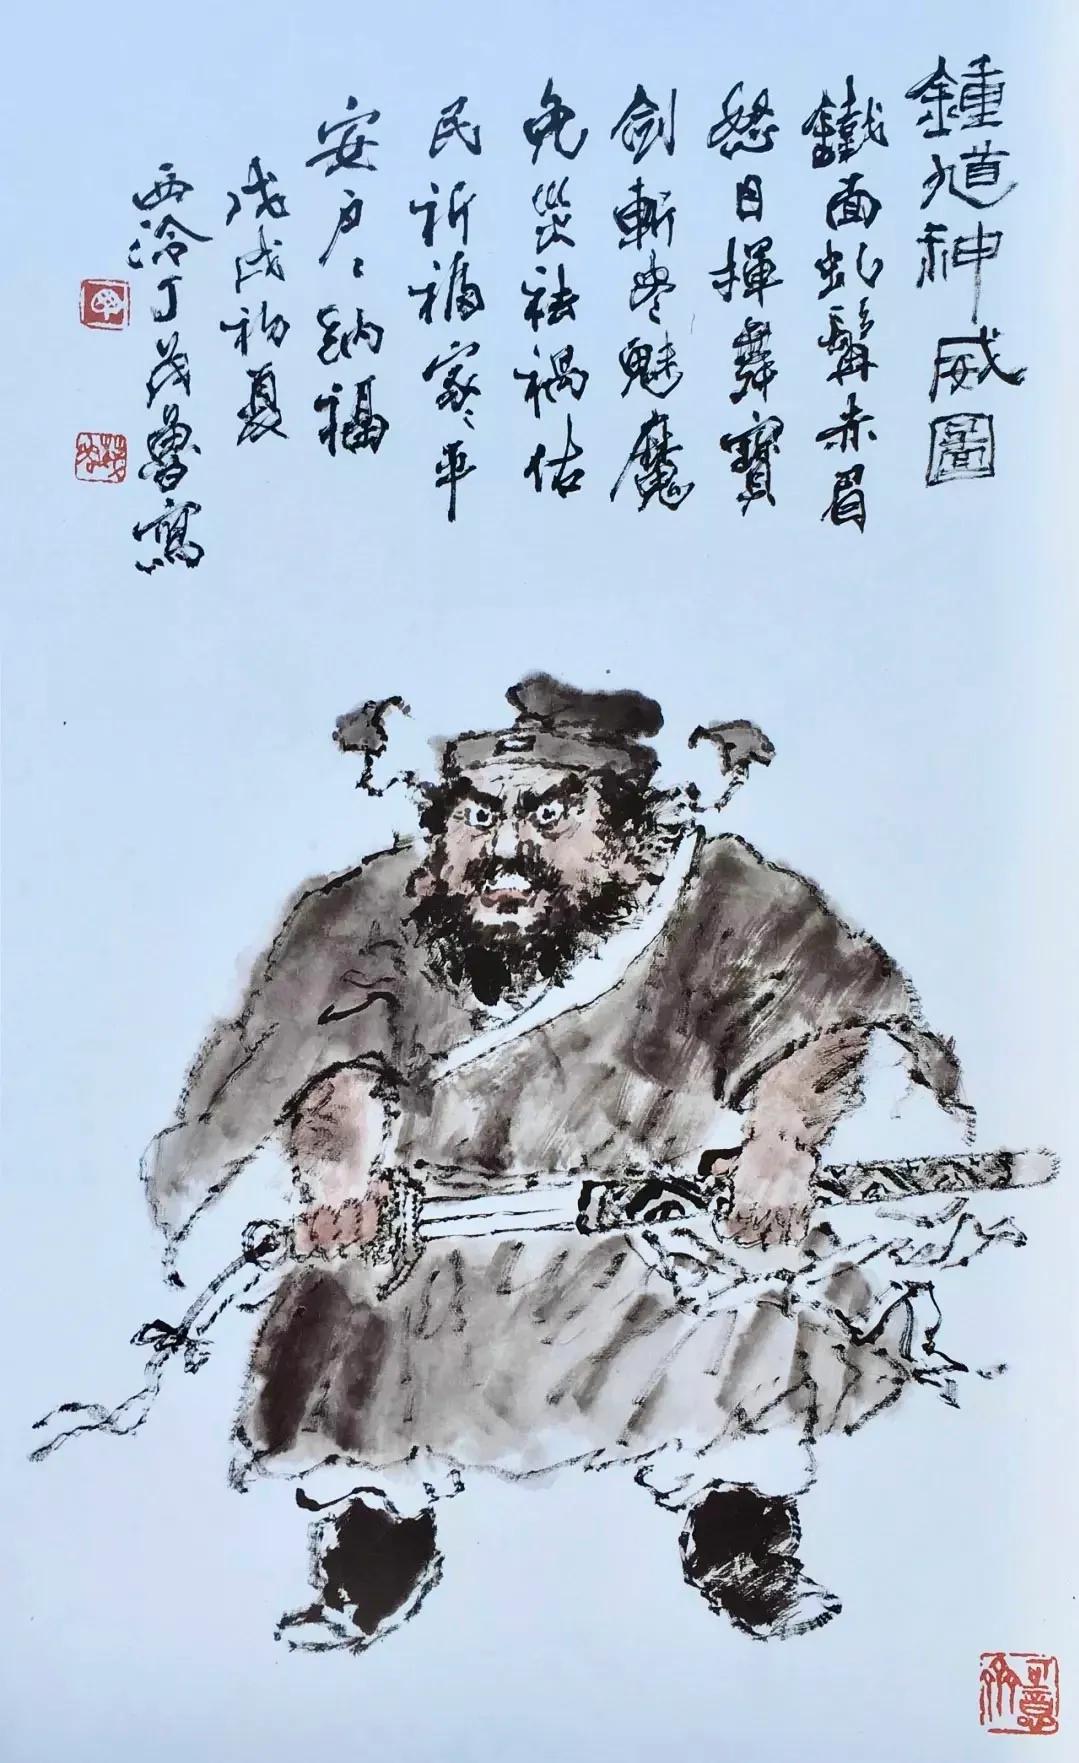 鍾馗神威圖
鐵面虬髯赤眉
怒目揮舞寶
劍斬盡魅魔
免災祛禍佑
民祈福家〻平
安戶〻納福
戊戌初夏
西泠丁茂魯寫